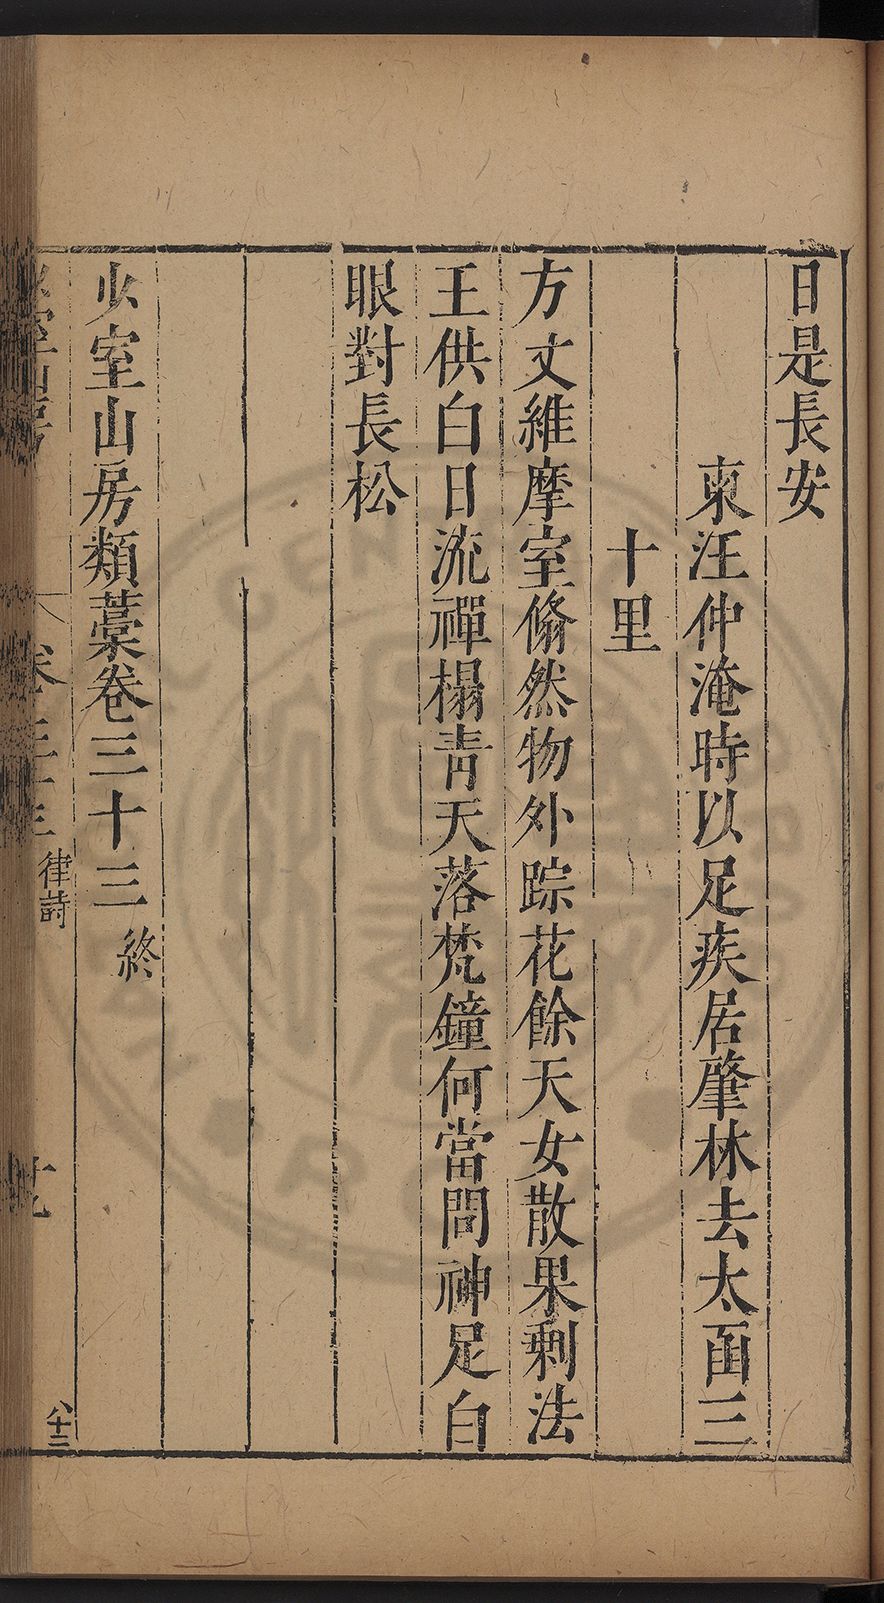 日是長安
柬汪仲淹時以足疾居肇林去太函三
十里
方丈維摩室翛然物外踪花餘天女散果剩法
王供白日流禪榻青天落梵鐘何當問神足白
眼對長松
少室山房類藁卷三十三 終
律詩
八十三